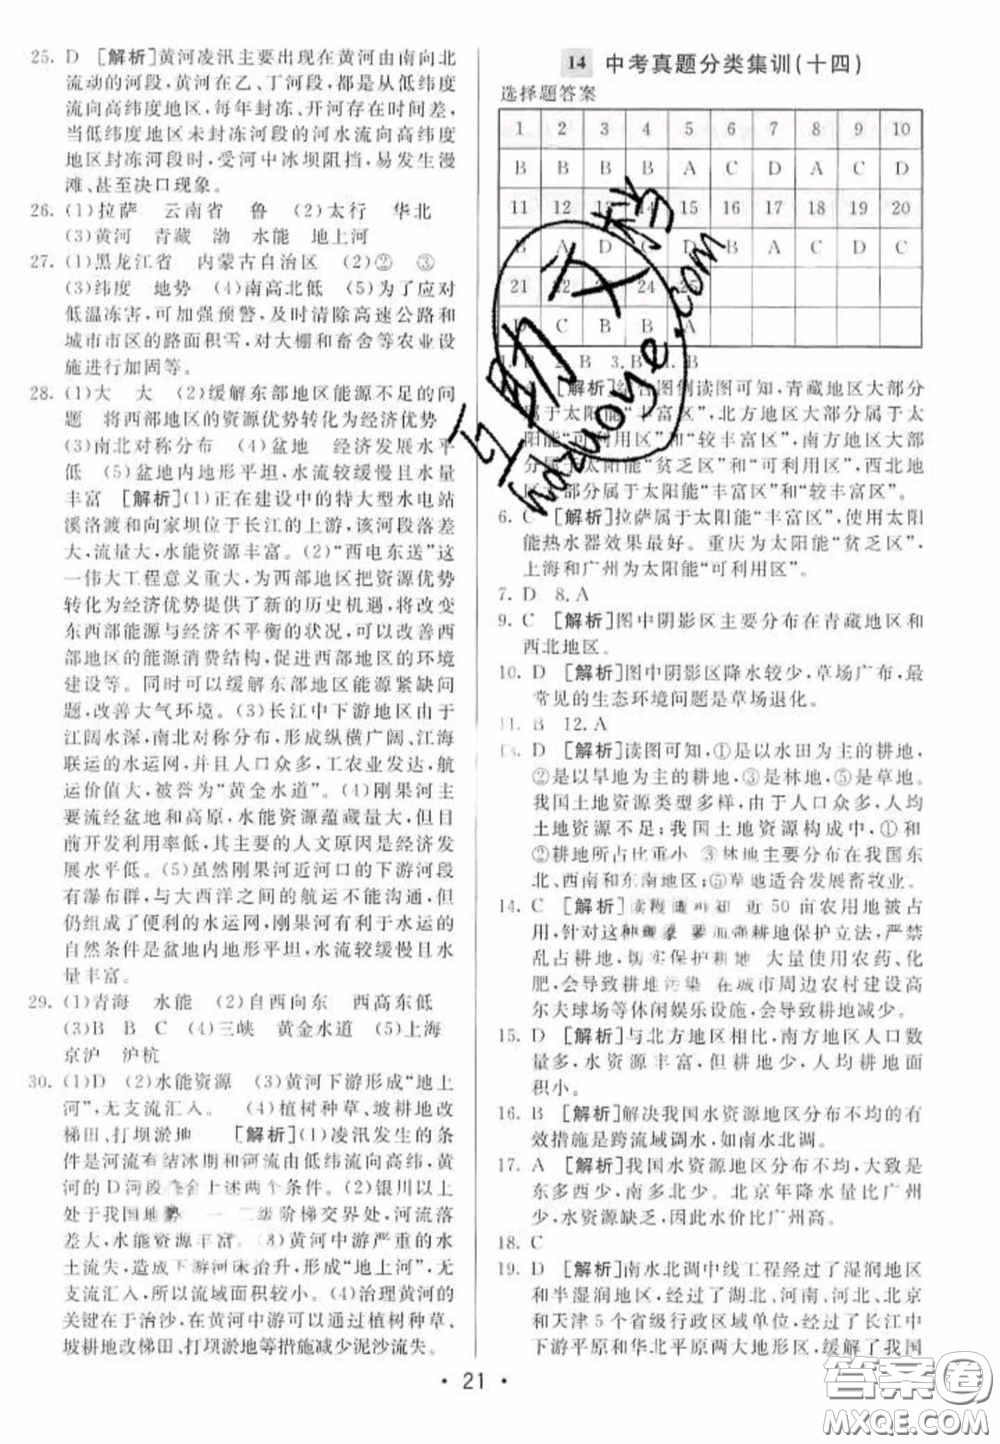 25. D [解析]黄河凌汛主要出现在黄河由南向北
流动的河段,黄河在乙、丁河段,都是由低纬
流向高纬度地区,每年封冻、开河存在时间差,
当低纬度地区未封冻河段的河水流向高纬度
地区封冻河段时,受河中冰坝阻挡,易发生漫
滩、甚至决口现象。
26. (1)拉萨 云南省 鲁 (2)太行 华北
(3)黄河 青藏 渤 水能 地上河
27. (1)黑龙江省 内蒙古自治区 (2)② ③
(3)纬度 地势 (4)南高北低 (5)为了应对
低温冻害,可加强预警,及时清除高速公路和
城市市区的路面积雪,对大棚和畜舍等农业设
施进行加固等。
28. (1)大 大 (2)缓解东部地区能源不足的问
题 将西部地区的资源优势转化为经济优势
(3)南北对称分布 (4)盆地 经济发展水平
低 (5)盆地内地形平坦,水流较缓慢且水量
丰富 [解析](1)正在建设中的特大型水电站
溪洛渡和向家坝位于长江的上游,该河段落差
大,流量大,水能资源丰富。(2)“西电东送”这
一伟大工程意义重大,为西部地区把资源优势
转化为经济优势提供了新的历史机遇,将改变
东西部能源与经济不平衡的状况,可以改善西
部地区的能源消费结构,促进西部地区的环境
建设等。同时可以缓解东部地区能源紧缺问
题,改善大气环境。(3)长江中下游地区由于
江阔水深,南北对称分布,形成纵横广阔、江海
联运的水运网,并且人口众多,工农业发达,航
运价值大,被誉为“黄金水道”。(4)刚果河主
要流经盆地和高原,水能资源蕴藏量大,但目
前开发利用率低,其主要的人文原因是经济发
展水平低。(5)虽然刚果河近河口的下游河段
有瀑布群,与大西洋之间的航运不能沟通,但
仍组成了便利的水运网,刚果河有利于水运的
自然条件是盆地内地形平坦,水流较缓慢且水
量丰富。
29. (1)青海 水能 (2)自西向东 西高东低
(3)B B C (4)三峡 黄金水道 (5)上海
京沪 沪杭
30. (1)D (2)水能资源 (3)黄河下游形成“地上
河”,无支流汇入。 (4)植树种草、坡耕地改
梯田、打坝淤地 [解析](1)凌汛发生的条
件是河流有结冰期和河流由低纬流向高纬,黄
河的D河段符合上述两个条件。(2)银川以上
处于我国地势一二级阶梯交界处,河流落
差大,水能资源丰富。(3)黄河中游严重的水
土流失,造成下游河床抬高,形成“地上河”,无
支流汇入,所以流域面积狭小。(4)治理黄河的
关键在于治沙,在黄河中游可以植树种草、
坡耕地改梯田、打坝淤地等措施减少泥沙流失。
14 中考真题分类集训(十四)
选择题答案
1 2 3 4 5 6 7 8 9 10
B B B B A C D A C D
11 12 13 14 15 16 17 18 19 20
B A D C D B A C D D
21 22 23 24 25
C B B A
1. B 2. B 3. B
A [解析]结合图例读图可知,青藏地区大部分
属于太阳能“丰富区”,北方地区大部分属于太
阳能“可利用区”和“较丰富区”,南方地区大部
分属于太阳能“贫乏区”和“可利用区”,西北地
区大部分属于太阳能“丰富区”和“较丰富区”。
6. C [解析]拉萨属于太阳能“丰富区”,使用太阳
能热水器效果最好。重庆为太阳能“贫乏区”,
上海和广州为太阳能“可利用区”。
7. D 8. A
9. C [解析]图中阴影区主要分布在青藏地区和
西北地区。
10. D [解析]图中阴影区降水较少,草场广布,最
常见的生态环境问题是草场退化。
11. B 12. A
13. D [解析]读图可知,①是以水田为主的耕地,
②是以旱地为主的耕地,③是林地,⑤是草地。
我国土地资源类型多样,由于人口众多,人均
土地资源不足;我国土地资源构成中,①和
②耕地所占比重小 ③林地主要分布在我国东
北、西南和东南地区;⑤草地适合发展畜牧业。
14. C [解析] 近50亩农用地被占
用,针对这种 耕地保护立法,严禁
乱占耕地,切实保护耕地 大量使用农药、化
肥,会导致耕地污染 在城市周边农村建设高
尔夫球场等休闲娱乐设施,会导致耕地减少。
15. D [解析]与北方地区相比,南方地区人口数
量多,水资源丰富,但耕地少,人均耕地面
积小。
16. B [解析]解决我国水资源地区分布不均的有
效措施是跨流域调水,如南水北调。
17. A [解析]我国水资源地区分布不均,大致是
东多西少,南多北少。北京年降水量比广州
少,水资源缺乏,因此水价比广州高。
18. C
19. D [解析]南水北调中线工程经过了湿润地区
和半湿润地区,经过了湖北、河南、河北、北京
和天津5个省级行政区域单位,经过了长江中
下游平原和华北平原两大地形区,缓解了我国
互助文档
hazuoye.com
• 21 •
答案圈
MXQE.COM